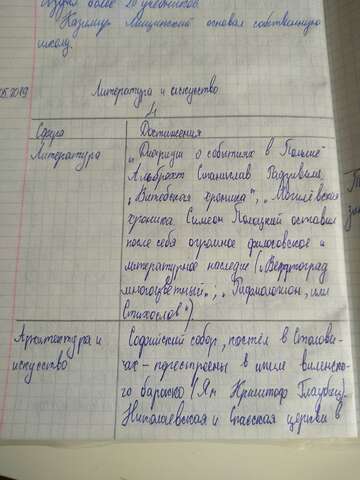 более 20 учебников.
Казимир Лыщинский основал собственную
школу.
05.2019
Литература и искусство
Сфера
Достижения
Литература
"Диариуш о событиях в Польше"
Альбрехт Станислав Радзивилл
"Витебская хроника", "Могилёвская
хроника Симеон Полоцкий оставил
после себя огромное философское и
литературное наследие ("Вертоград
многоцветный", "Рифмологион, или
Стихослов").
Архитектура и
искусство
Софийский собор, костёл в Столови-
чах - перестроены в стиле виленско-
го барокко (Ян Криштоф Глаубиц).
Николаевская и Спасская церкви в